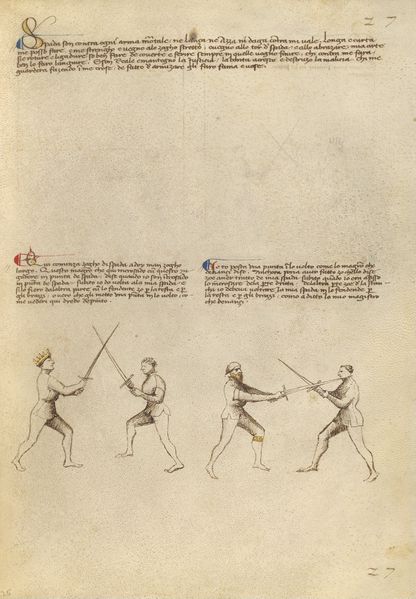 27
Spada son contra ogn' arma mortale, ne lanza ne Azza ne daga contra mi vale. Longa e curta
me posso fare, e me strengho e vegno alo zogho streto, e vegno allo tor d' spada, e allo abrazare, mia arte
sie roture e ligadure so ben fare de coverte e ferire sempre in quelle voglio finire, chi contra me fara
ben lo faro languire. E son Reale e mantegno la justicia, la bonta acresco e destruzo la malicia. chi me
guardera fazendo in me crose, de fatto d'armizare gli faro fama e vose.
Qui cominza zogho di spada a doy man zogho
largo. Questo magistro che qui incrosado cum questo zu
gadore in punta de spada dise quando io son incrosado
in punta de spada subito io do volta ala mia spada e
si lo fiero del altra parte cum lo fendente zo per la testa e per
gli brazzi, overo che gli metto una punta in lo volto, co
me vederi qui dredo depento
Io t'o posta una punta in lo volto come lo magistro che
denanzi dise. Anchora poria aver fatto zo ch'ello dise
zoe aver tratto de mia spada subito quando io era apresso
lo incrosare dela parte dritta. de l'altra parte zoe de la stan
cha io debeva voltare la mia spada in lo fendente per
la testa e per gli brazzi, como a ditto lo mio magistro
che denanzi.
27